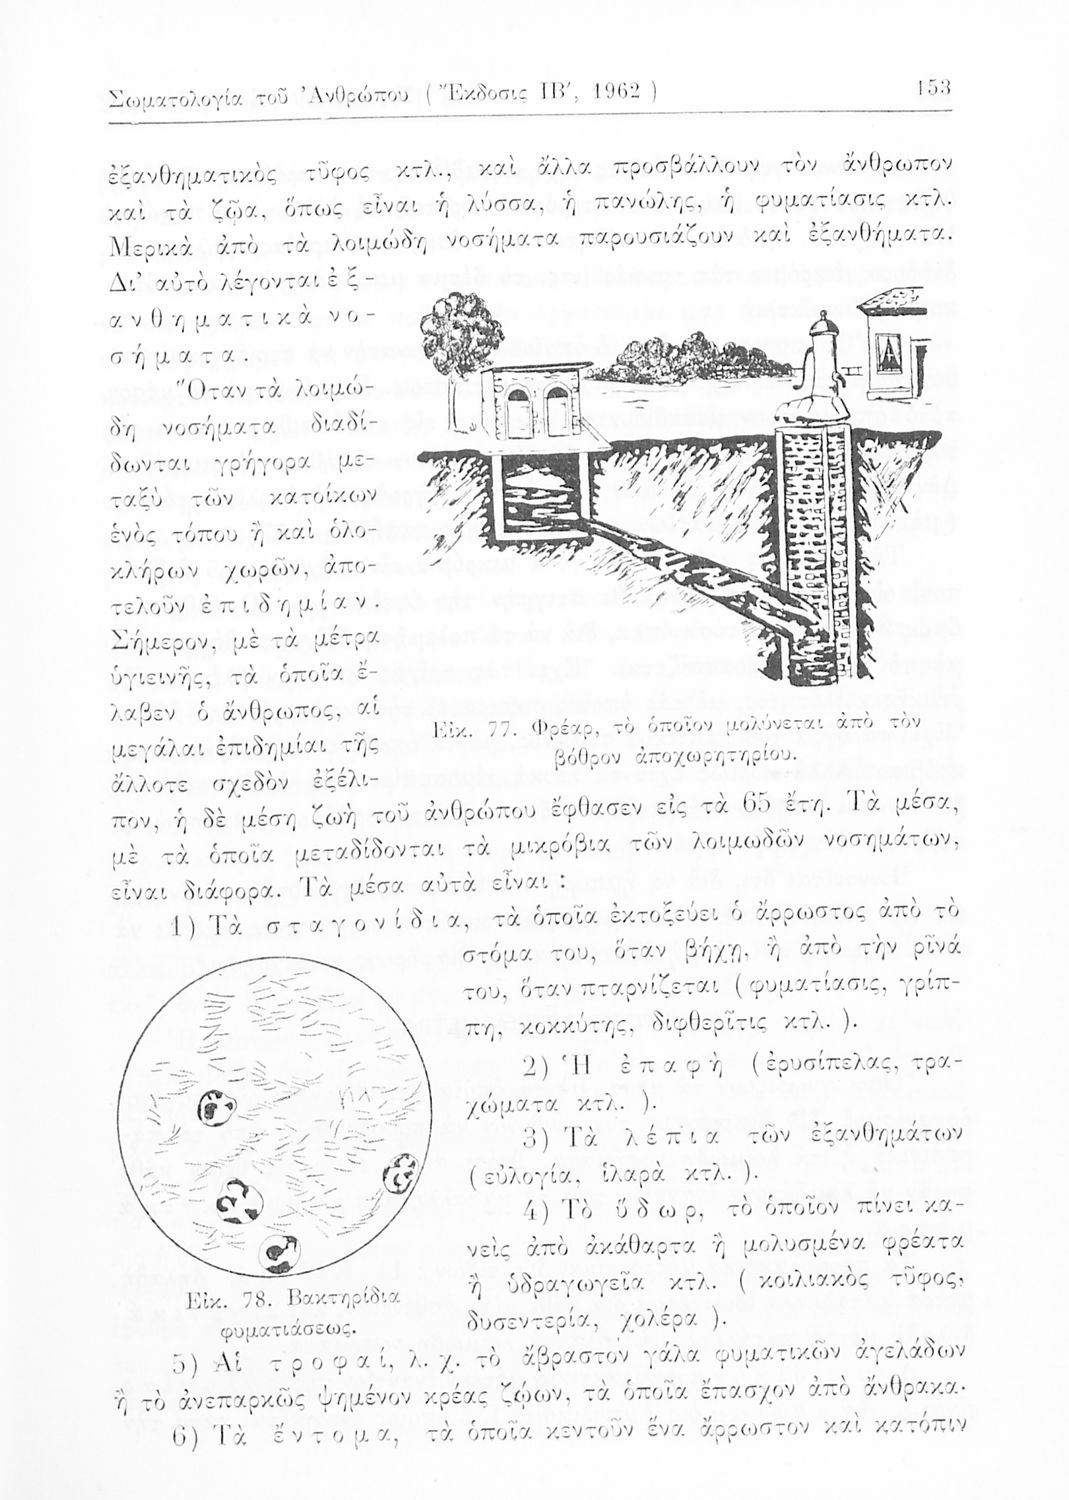 Σωματολογία τοῦ Ἀνθρώπου ( Ἔκδοσις ΙΒ′, 1962 ) 153
ἐξανθηματικὸς τῦφος κτλ., καὶ ἄλλα προσβάλλουν τὸν ἄνθρωπον
καὶ τὰ ζῷα, ὅπως εἶναι ἡ λύσσα, ἡ πανώλης, ἡ φυματίασις κτλ.
Μερικὰ ἀπὸ τὰ λοιμώδη νοσήματα παρουσιάζουν καὶ ἐξανθήματα.
Δι' αὐτὸ λέγονται ἐ ξ -
α ν θ η μ α τ ι κ ὰ ν ο -
σ ή μ α τ α .
Ὅταν τὰ λοιμώ-
δη νοσήματα διαδί-
δωνται γρήγορα με-
ταξὺ τῶν κατοίκων
ἑνὸς τόπου ἢ καὶ ὁλο-
κλήρων χωρῶν, ἀπο-
τελοῦν ἐ π ι δ η μ ί α ν .
Σήμερον, μὲ τὰ μέτρα
ὑγιεινῆς, τὰ ὁποῖα ἔ-
λαβεν ὁ ἄνθρωπος, αἱ
μεγάλαι ἐπιδημίαι τῆς
ἄλλοτε σχεδὸν ἐξέλι-
Εἰκ. 77. Φρέαρ, τὸ ὁποῖον μολύνεται ἀπὸ τὸν
βόθρον ἀποχωρητηρίου.
πον, ἡ δὲ μέση ζωὴ τοῦ ἀνθρώπου ἔφθασεν εἰς τὰ 65 ἔτη. Τὰ μέσα,
μὲ τὰ ὁποῖα μεταδίδονται τὰ μικρόβια τῶν λοιμωδῶν νοσημάτων,
εἶναι διάφορα. Τὰ μέσα αὐτὰ εἶναι :
1) Τὰ σ τ α γ ο ν ί δ ι α, τὰ ὁποῖα ἐκτοξεύει ὁ ἄρρωστος ἀπὸ τὸ
στόμα του, ὅταν βήχῃ, ἢ ἀπὸ τὴν ρῖνά
του, ὅταν πταρνίζεται ( φυματίασις, γρίπ-
πη, κοκκύτης, διφθερῖτις κτλ. ).
2) Ἡ ἐ π α φ ὴ ( ἐρυσίπελας, τρα-
χώματα κτλ. ).
3) Τὰ λ έ π ι α τῶν ἐξανθημάτων
( εὐλογία, ἱλαρὰ κτλ. ).
4) Τὸ ὕ δ ω ρ, τὸ ὁποῖον πίνει κα-
νεὶς ἀπὸ ἀκάθαρτα ἢ μολυσμένα φρέατα
ἢ ὑδραγωγεῖα κτλ. ( κοιλιακὸς τῦφος,
δυσεντερία, χολέρα ).
Εἰκ. 78. Βακτηρίδια
φυματιάσεως.
5) Αἱ τ ρ ο φ α ί, λ. χ. τὸ ἄβραστον γάλα φυματικῶν ἀγελάδων
ἢ τὸ ἀνεπαρκῶς ψημένον κρέας ζῴων, τὰ ὁποῖα ἔπασχον ἀπὸ ἄνθρακα.
6) Τὰ ἔ ν τ ο μ α, τὰ ὁποῖα κεντοῦν ἕνα ἄρρωστον καὶ κατόπιν